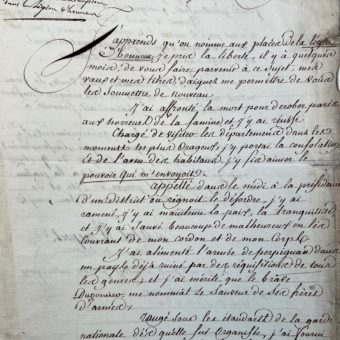 dans la légion d'honneur
J'apprends qu'on nomme aux places de la légion
d'honneur, je pris la liberté, il y a quelques
mois, de vous faire parvenir à ce sujet, mes
vœux et mes titres, daignez me permettre de vous
les soumettre de nouveau.
J'ai affronté la mort pour dérober paris
aux horreurs de la famine et j'y ai réussi
Chargé de visiter les départemens dans les
momens les plus orageux j'y portai la consolation
et de l'aveu des habitans j'y fis aimer le
pouvoir qui m'envoyoit.
appellé dans le midi à la présidence
d'un district où regnoit le désordre, j'y ai
ramené, j'y ai maintenu la paix, la tranquilité
et j'y ai sauvé beaucoup de malheureux en les
couvrant de mon cordon et de mon Corps.
J'ai alimenté l'armée de perpignan dans
un pays déjà ruiné par des réquisitions de tous
les genres, et j'ai mérité que le brave
Dugommier me nommat le Sauveur de Ses frères
d'armes.
rangé sous les standarts de la garde
nationale dès qu'elle fut organisée, j'ai